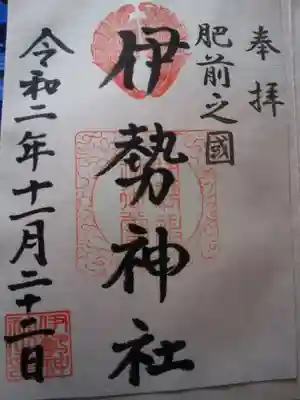 奉拝
肥前之國
伊勢神社
令和二年十一月二十二日